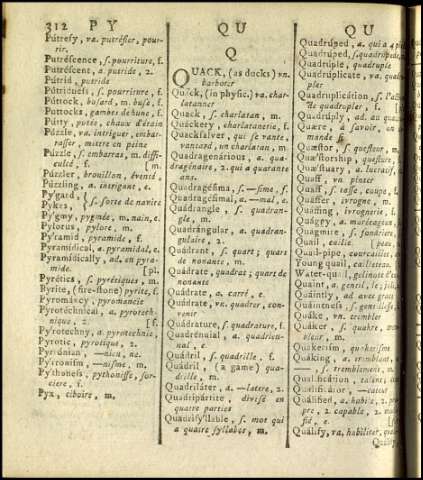 312 PY
QU
QU
Pútrefy, va. putréfier, pour-
rir.
Putréfcence, ſ. pourriture, f.
Putréſcent, a. putride, 2.
Pútrid, putride
Pútridneſs, ſ. pourriture, f.
Púttock, buſard, m. buſe, f.
Puttocks, gambes de hune, f.
Putty, potée, chaux d'étain
Púzzle, va. intriguer, embar-
raſſer, mettre en peine
Púzzle, ſ. embarras, m. diffi-
culté, f. [m.
Púzzler, brouillon, éventé,
Púzzling, a. intrigant, e.
Py'gard,
Pykrz, } ſ. ſorte de navire
Py'gmy, pygmée, m. nain, e.
Pylorus, pylore, m.
Py'ramid, pyramide, f.
Pyramídical, a. pyramidal, e.
Pyramídically, ad. en pyra-
mide. [pl.
Pyrétics, ſ. pyrétiques, m.
Pyrite, (fire-ſtone) pyrite, f.
Pyrománcy, pyromancie
Pyrotéchnical, a. pyrotech-
nique, 2. [f.
Pyrotechny, a. pyrotechnie,
Pyrotic, pyrotique, 2.
Pyrrónian, —nien, ne.
Py'rroniſm, —niſme, m.
Py'thoneſs, pythoniſſe, ſor-
ciere, f.
Pyx, ciboire, m.
Q
QUACK, (as ducks) vn.
barboter
Quack, (in phyſic.) va. char-
latanner
Quack, ſ. charlatan, m.
Quáckery, charlatanerie, f.
Quackſalver, qui ſe vante,
vantard, un charlatan, m
Quadragenárious, a. qua-
dragénaire, 2. qui a quarante
ans.
Quadragéſima, ſ. —ſime, f.
Quadragéſimal, a. —mal, e.
Quádrangle, ſ. quadran-
gle, m.
Quadrángular, a. quadran-
gulaire, 2.
Quádrant, ſ. quart; quart
de nonante, m.
Quádrate, quadrat; quart de
nonante
Quádrate, a. carré, e.
Quádrate, vn. quadrer, con-
venir
Quádrature, ſ. quadrature, f.
Quadrénnial, a. quadrien-
nal, e.
Quádril, ſ. quadrille, f.
Quádril, (a game) qua-
drille, m.
Quadriláter, a. —latere, 2.
Quadripártite, diviſé en
quatre parties
Quadriſy'llable, ſ. mot qui
a quatre ſyllabes, m.
Quadruped, a. qui a 4
Quadrúped, ſ. quadrupede,
Quadrúple, quadruple
Quadrúplicate, va. quadru-
pler
Quadruplicátion, ſ.
de quadrupler, f.
Quádruply, ad. au
Quære, à ſavoir, on
mande ſi
Quæſtor, ſ. queſteur, m.
Quæſtorſhip, queſture,
Quæſtuary, a. lucratif,
Quaff, vn. pinter
Quaff, ſ. taſſe, coupe, f.
Quáffer, ivrogne, m.
Quáffing, ivrognerie, f.
Quággy, a. marécageux,
Quágmire, ſ. fondriere,
Quail, caille.
Quail-pipe, courcaillet,
Young quail, cailleteau
Water-quail, gelinote d'eau
Quaint, a. gentil, le; joli,
Quaíntly, ad. avec grace
Quaíntneſs, ſ. gentilleſſe,
Quáke, vn. trembler
Quáker, ſ. quakre,
bleur, m.
Quákeriſm, quakeriſme
Quáking, a. tremblant,
—, ſ. tremblement, m.
Qualificátion, talent,
Qualificátor, —cateur
Quálified, a. habile, 2.
pre, 2. capable, 2.
fié, e.
Quálify, va. habiliter,